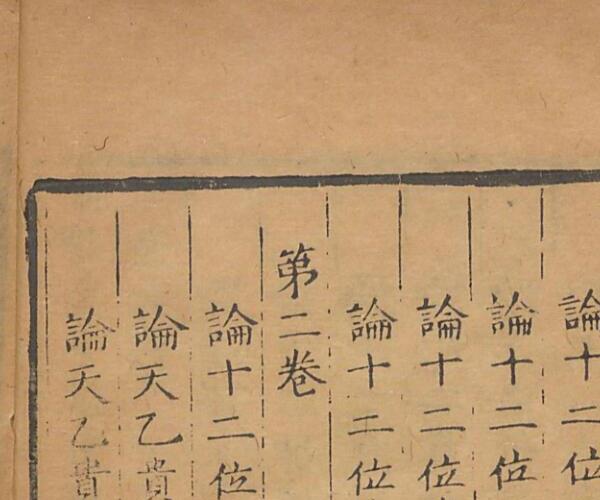 論十二位
論十二位
論十二位
論十二位
第二卷
論十二位
論天乙貴
論天乙貴